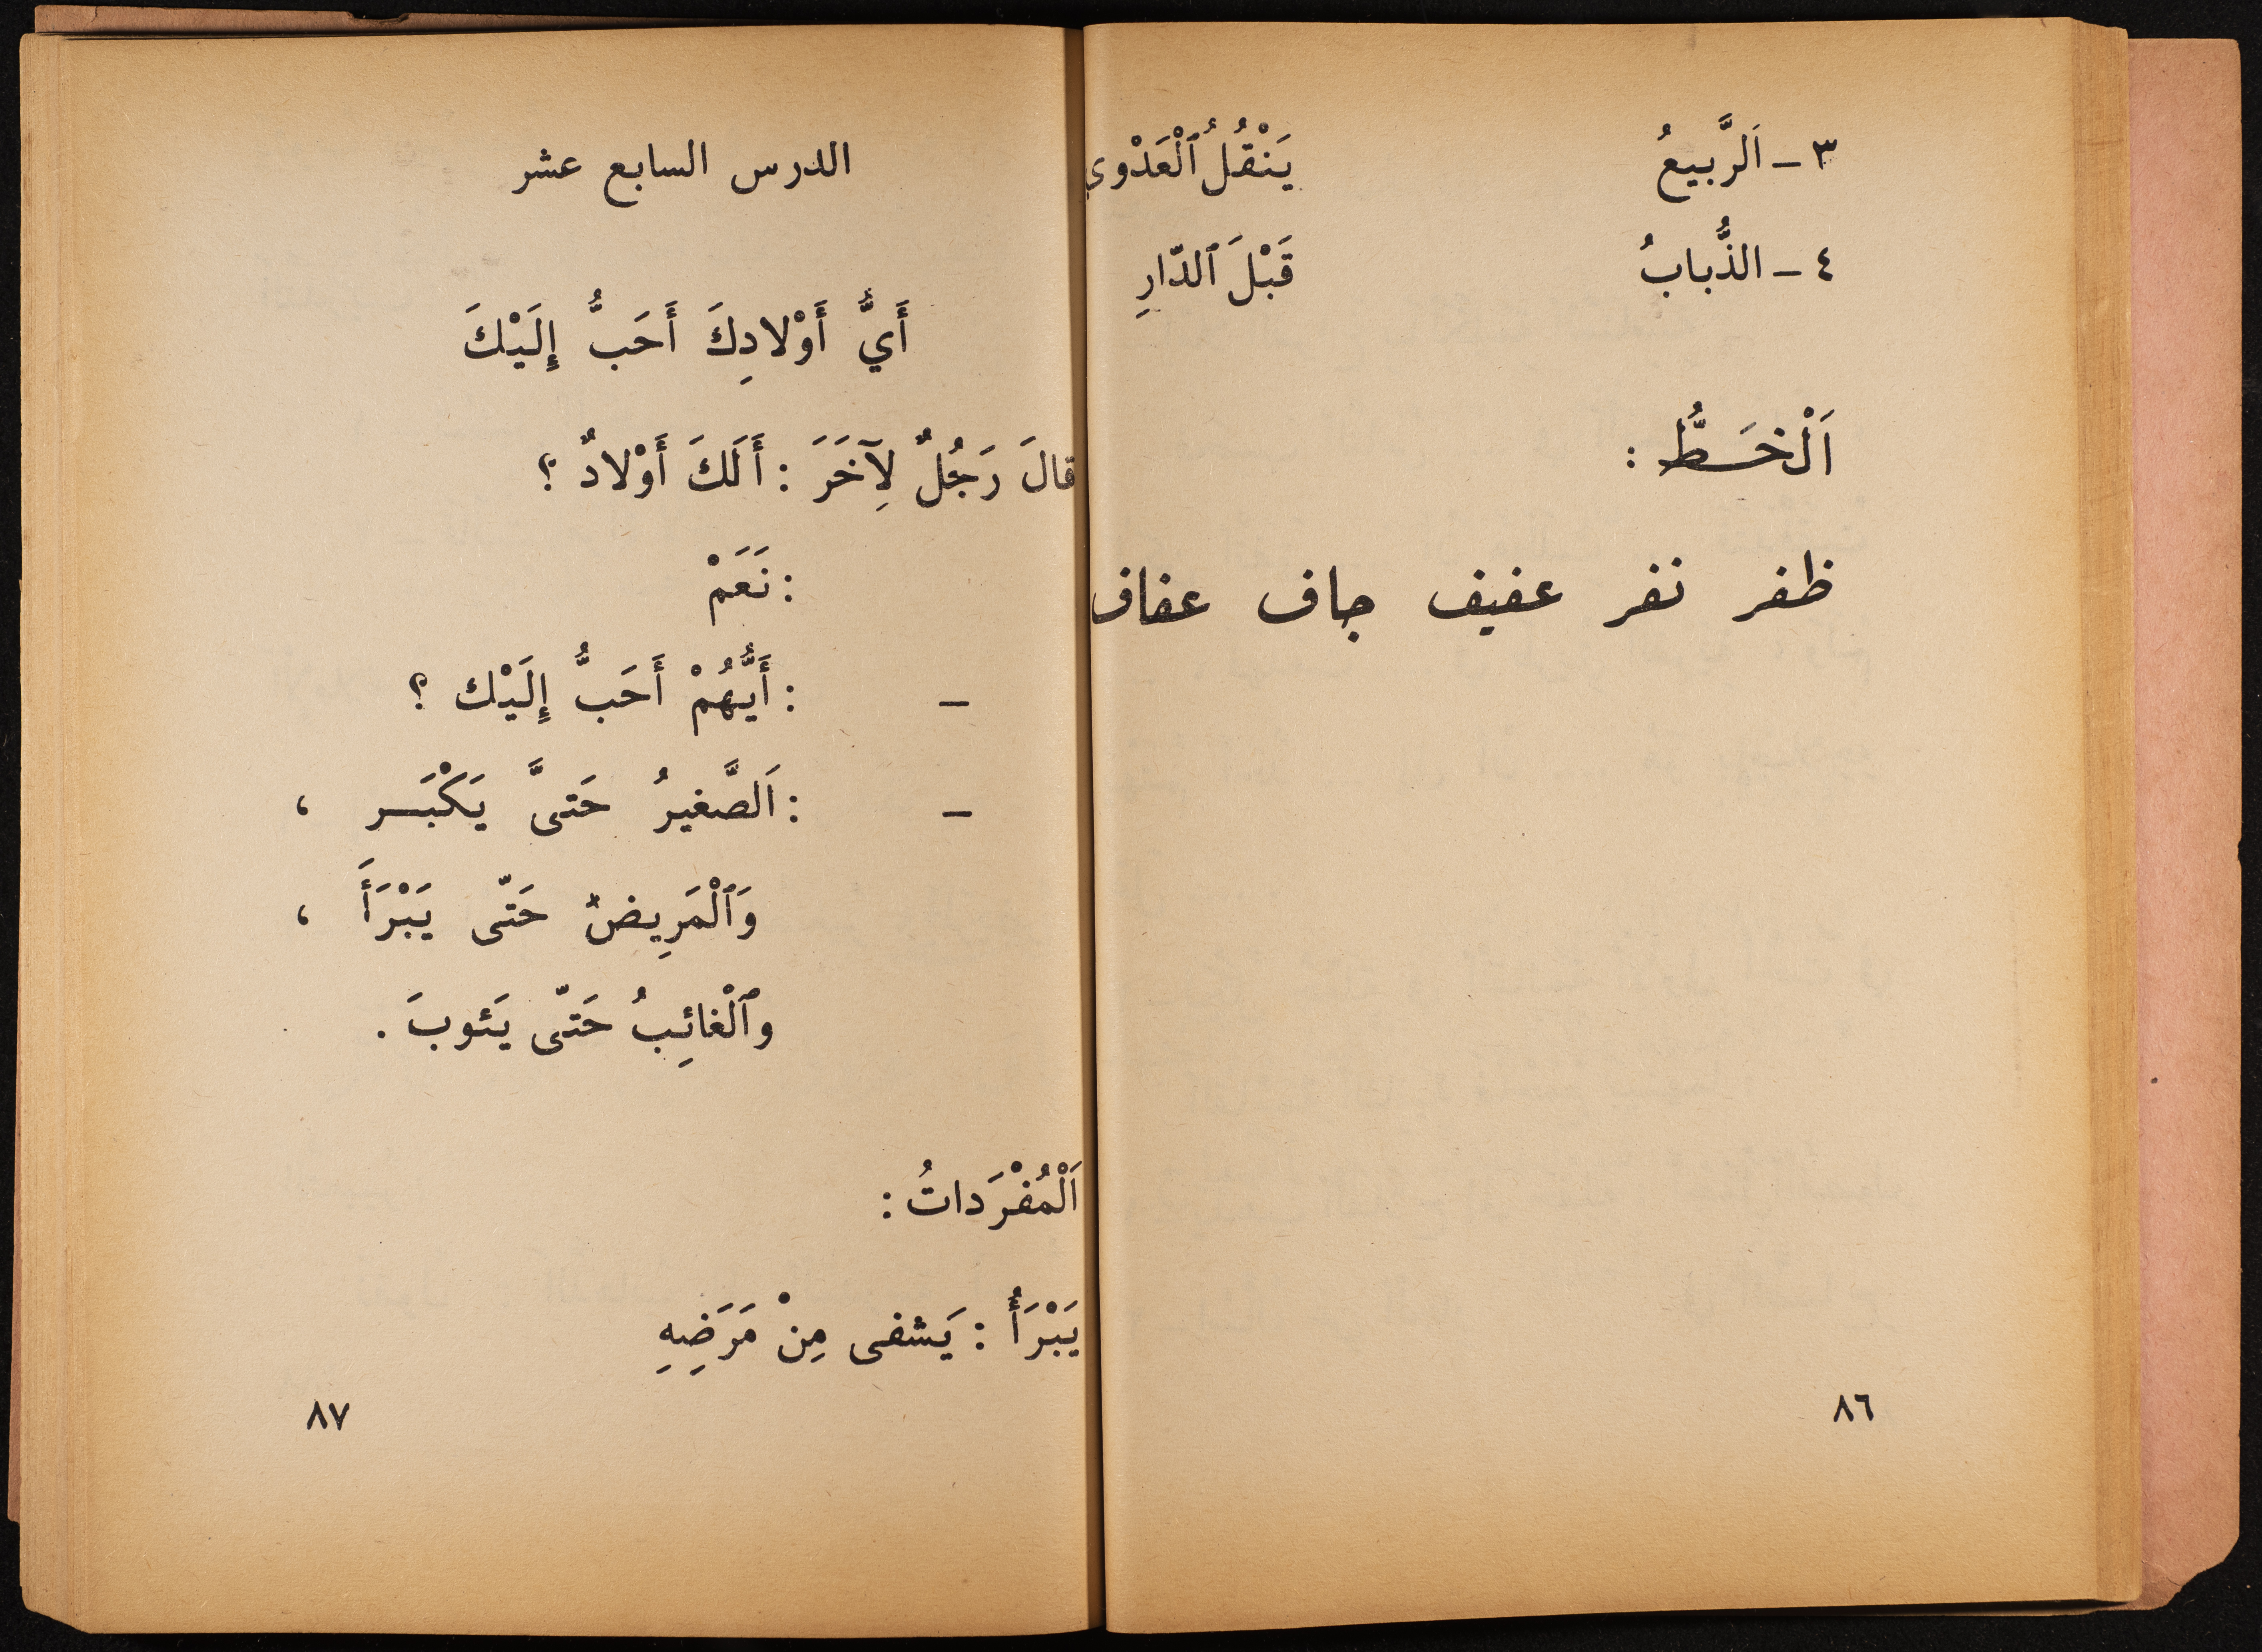 ٣ - اَلرَّبيعُ يَنْقُلُ ٱلْعَدْوي
٤ - الذُّبابُ قَبْلَ ٱلدّارِ
اَلْخَـطُّ :
ظفر نفر عفيف جاف عفاف
٨٦
الدرس السابع عشر
أَيُّ أَوْلادِكَ أَحَبُّ إِلَيْكَ
قالَ رَجُلٌ لِآخَرَ : أَلَكَ أَوْلادٌ ؟
: نَعَمْ
– : أَيُّهُمْ أَحَبُّ إِلَيْك ؟
– : اَلصَّغيرُ حَتىَّ يَكْبَـر ،
وَٱلْمَرِيضُ حَتّى يَبْرَأَ ،
وٱلْغائِبُ حَتّى يَئوبَ .
اَلْمُفْرَداتُ :
يَبْرَأُ : يَشفى مِنْ مَرَضِهِ
٨٧